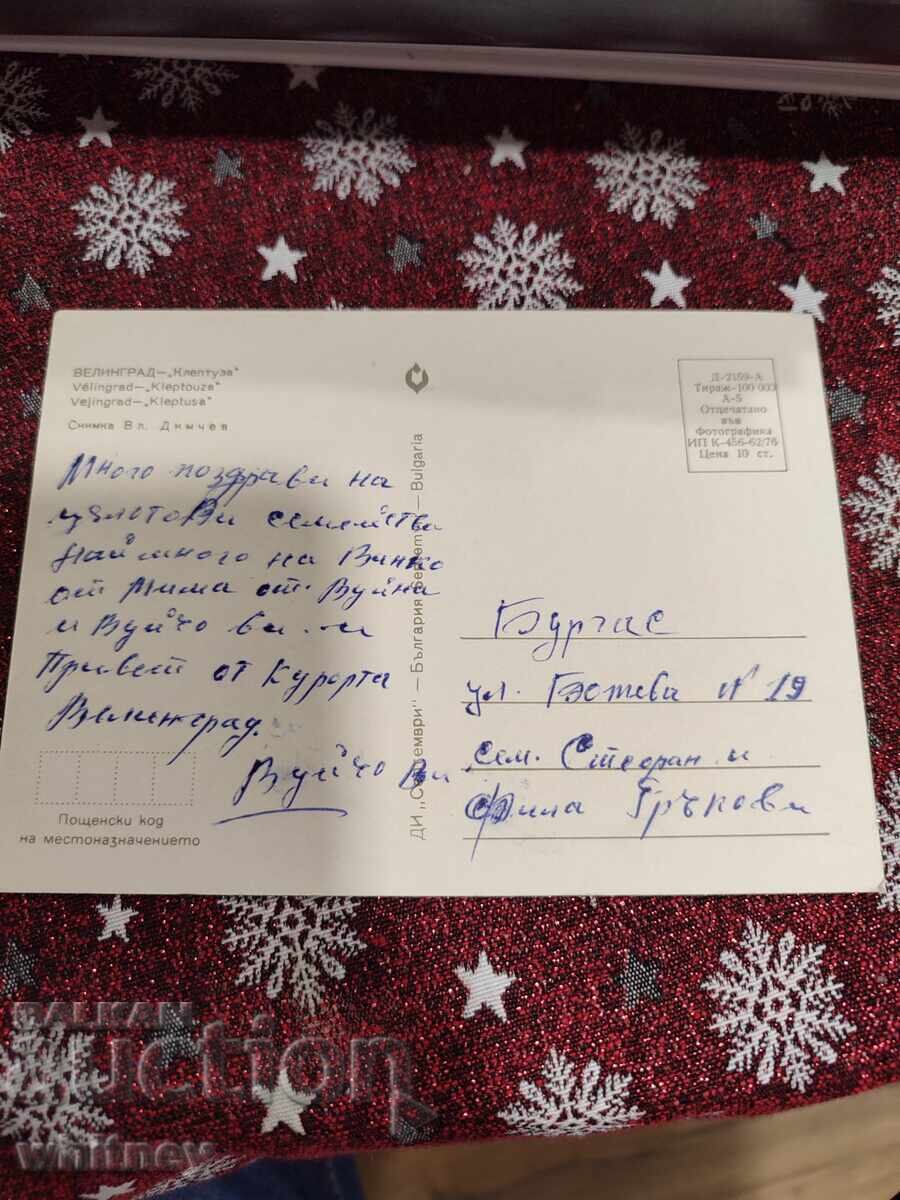 ВЕЛИНГРАД—„Клептуза"
Vélingrad—„Kleptouza"
Velingrad—„Kleptusa"
Снимка Вл. Димчев
Много поздрави на
семейства
най много на Ванко
от Мима от Вуйна
и Вуйчо ви и
Привет от Курорта
Велинград.
Вуйчо Ви
Пощенски код
на местоназначението
ДИ „Септември" — България — Bulgaria
Д-2159-А
Тираж-100 000
А-5
Отпечатано
във
Фотографика
ИП К-456-62/76
Цена 10 ст.
Бургас
ул. Ботева N 19
сем. Стефан и
Фила Гръкови
BALKAN
auction
whitney